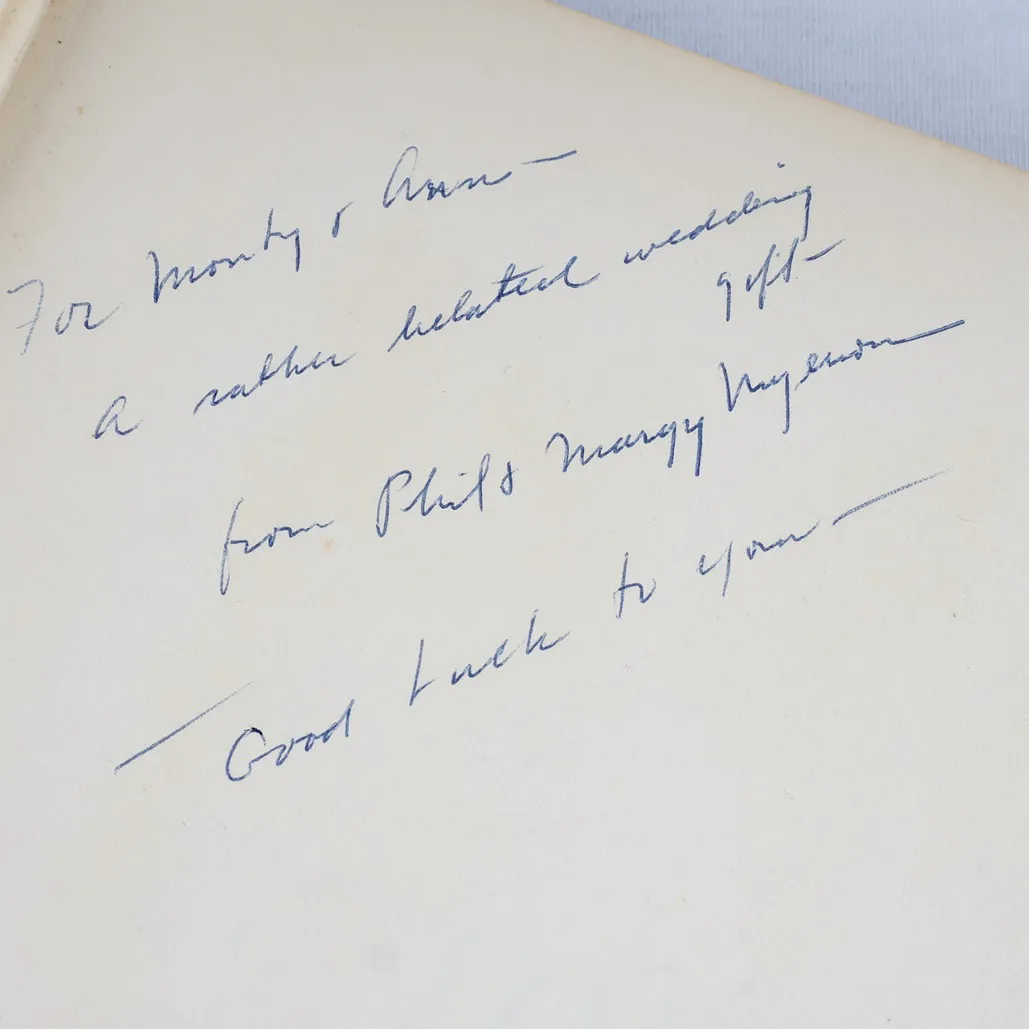 For Monty & Ann —
a rather belated wedding
gift —
from Phil & Margy
— Good Luck to you —